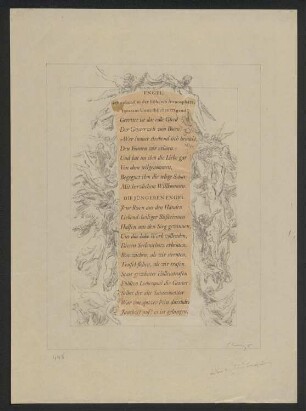 ENGEL
schwebend in der höheren Atmosphäre,
Faustens Unsterbliches tragend
Gerettet ist das edle Glied
Der Geisterwelt vom Bösen:
»Wer immer strebend sich bemüht,
Den können wir erlösen.«
Und hat an ihm die Liebe gar
Von oben teilgenommen,
Begegnet ihm die selige Schar
Mit herzlichem Willkommen.
DIE JÜNGEREN ENGEL
Jene Rosen aus den Händen
Liebend-heiliger Büßerinnen
Halfen uns den Sieg gewinnen,
Uns das hohe Werk vollenden,
Diesen Seelenschatz erbeuten.
Böse wichen, als wir streuten,
Teufel flohen, als wir trafen.
Statt gewohnter Höllenstrafen
Fühlten Liebesqual die Geister;
Selbst der alte Satansmeister
War von spitzer Pein durchdrungen.
Jauchzet auf! es ist gelungen.